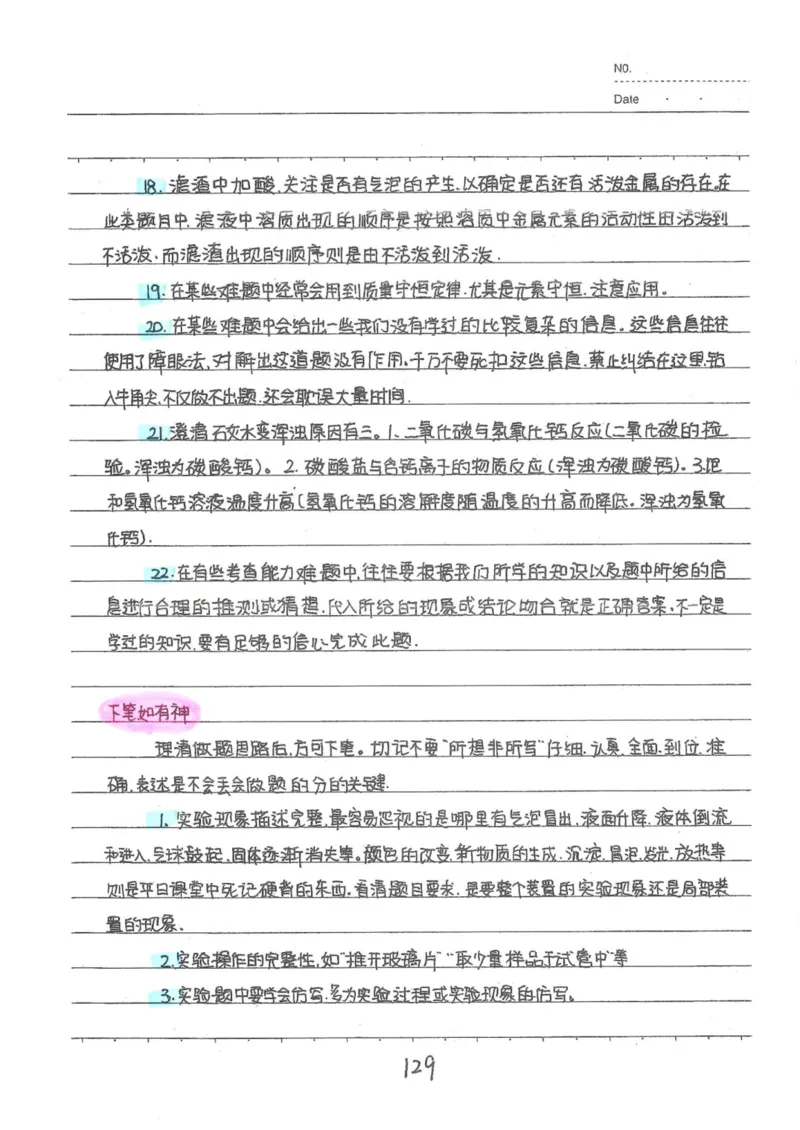 NO.
Date
18. 滤渣中加酸,关注是否有气泡的产生,以确定是否还有活泼金属的存在。在
此类题目中,滤液中溶质出现的顺序是按照溶质中金属元素的活动性由活泼到
不活泼、而滤渣出现的顺序则是由不活泼到活泼.
19. 在某些难题中经常会用到质量守恒定律.尤其是元素守恒.注意应用。
20. 在某些难题中会给出一些我们没有学过的比较复杂的信息。这些信息往往
使用了障眼法,对解出这道题没有作用。千万不要死扣这些信息.禁止纠结在这里.钻
入牛角尖.不仅做不出题.还会耽误大量时间.
21.澄清石灰水变浑浊原因有三。1、二氧化碳与氢氧化钙反应(二氧化碳的检
验。浑浊为碳酸钙)。2. 碳酸盐与含钙离子的物质反应(浑浊为碳酸钙)。3.饱
和氢氧化钙溶液温度升高(氢氧化钙的溶解度随温度的升高而降低。浑浊为氢氧
化钙).
22.在有些考查能力难题中,往往要根据我们所学的知识以及题中所给的信
息进行合理的推测或猜想.代入所给的现象或结论吻合就是正确答案,不一定是
学过的知识.要有足够的信心完成此题.
下笔如有神
理清做题思路后,方可下笔。切记不要"所想非所写"仔细.认真.全面.到位.准
确,表述是不会丢会做题的分的关键.
1. 实验现象描述完整,最容易忽视的是哪里有气泡冒出,液面升降.液体倒流
和进入,气球鼓起,固体逐渐消失等。颜色的改变.新物质的生成.沉淀.冒泡.发光.放热等
则是平日课堂中死记硬背的东西.看清题目要求.是要整个装置的实验现象还是局部装
置的现象.
2.实验操作的完整性,如"推开玻璃片""取少量样品于试管中"等
3.实验题中要学会仿写.多为实验过程或实验现象的仿写。
129